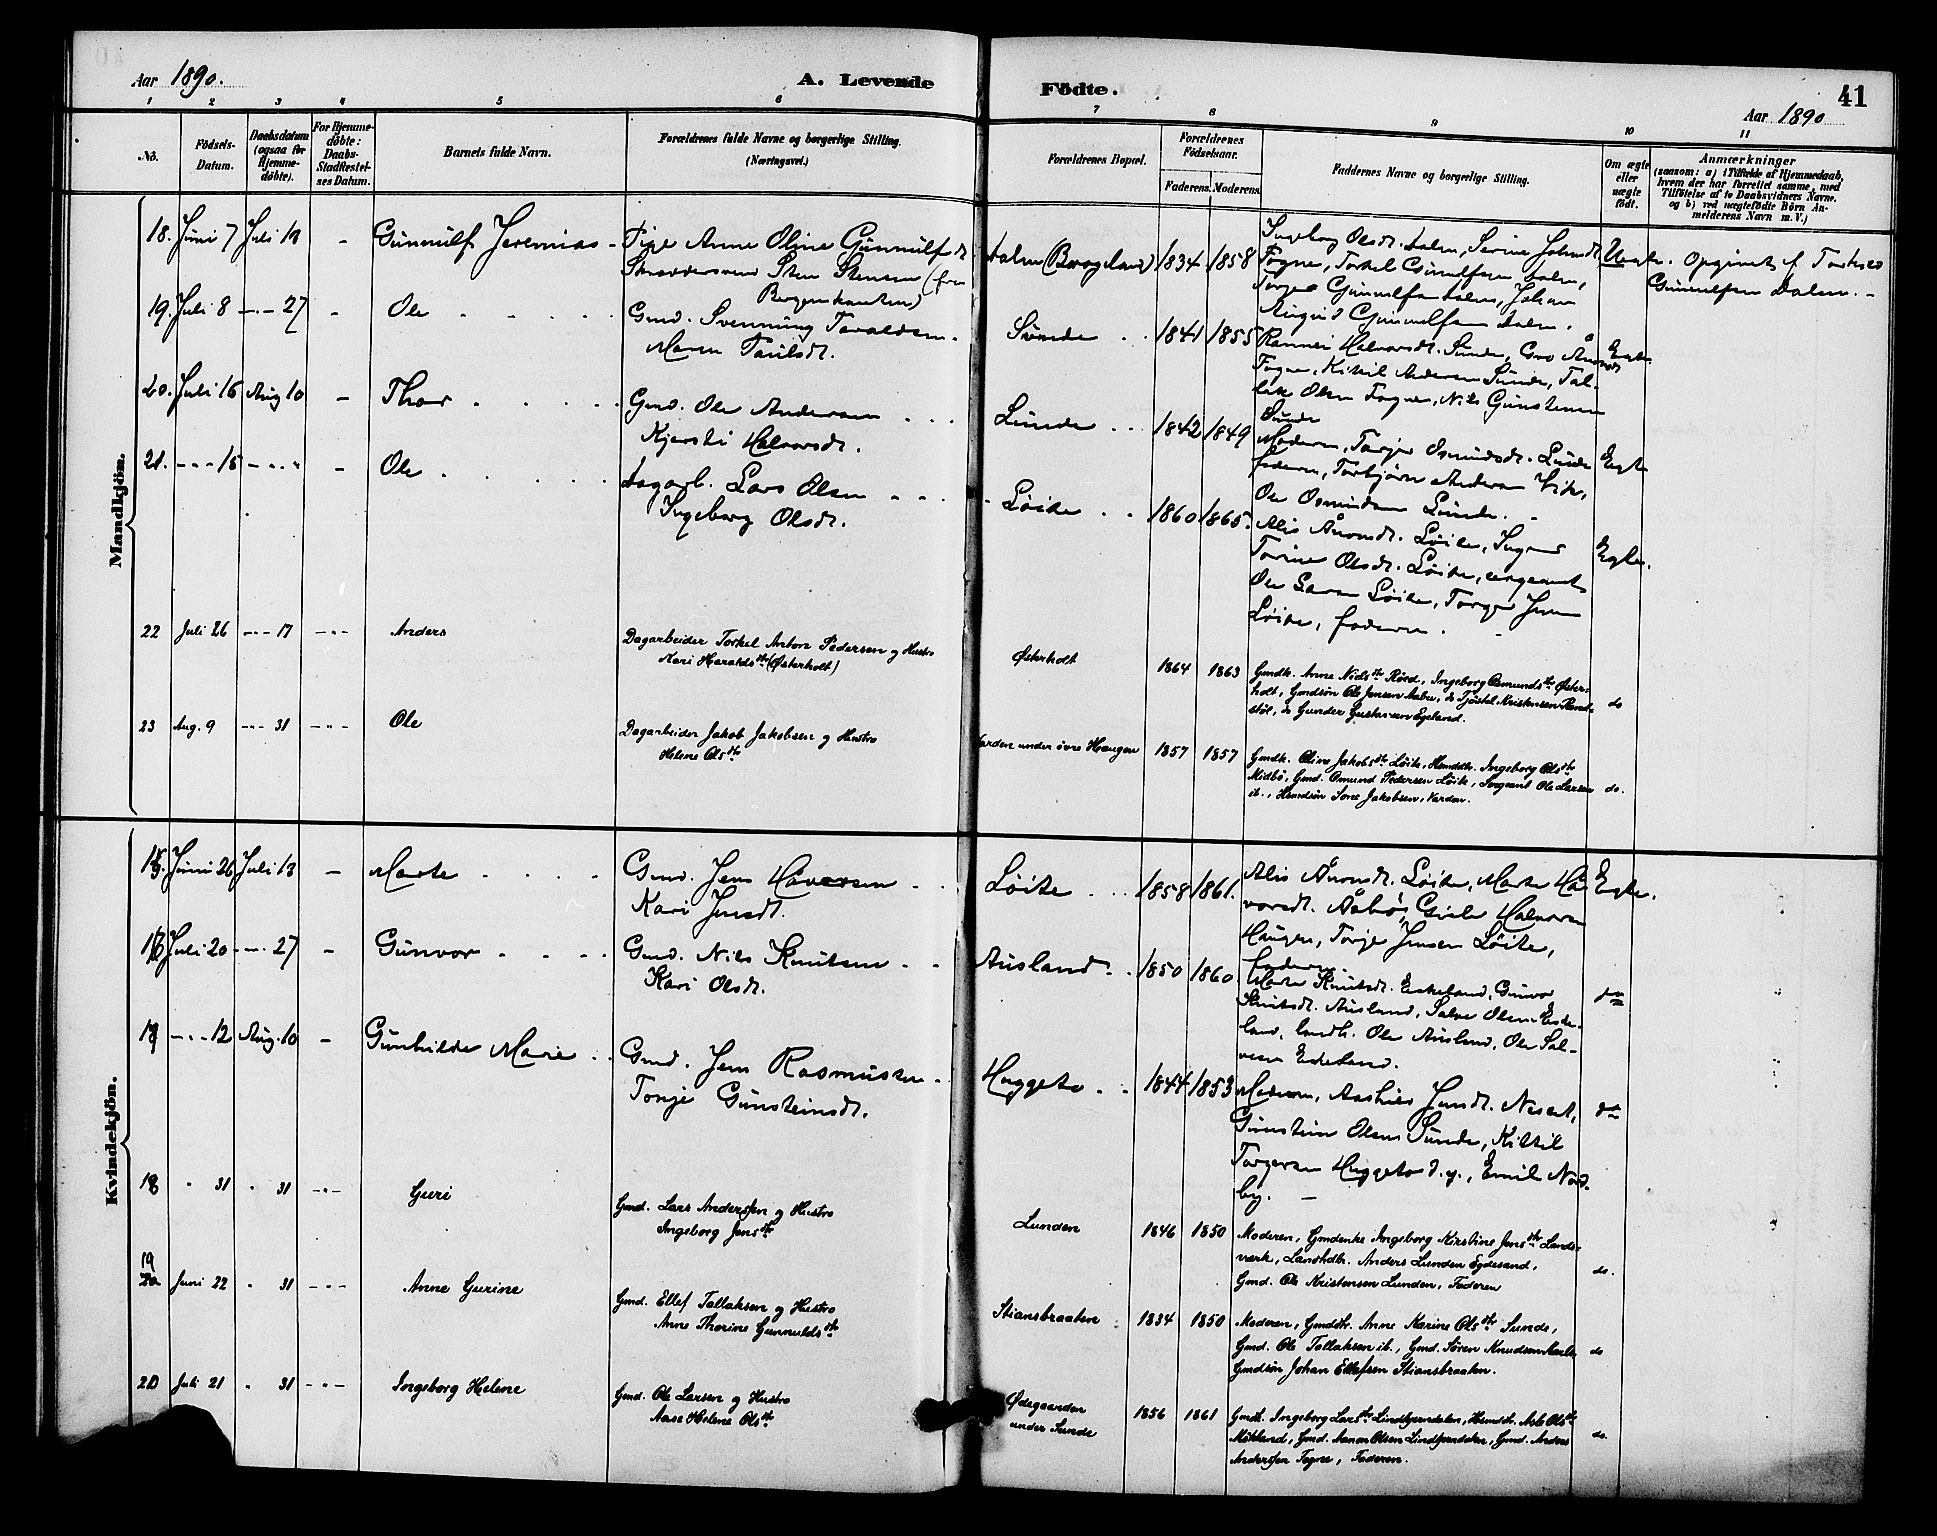 Aar 1890.
A. Levende
Födte.
41
Aar 1890
1 2 3 4 5 6 7 8 9 10 11
No.
Födsels-Datum.
Daabsdatum (ogsaa for Hjemme-döbte).
For Hjemme-döbte: Daabs-Stadfæstel-ses Datum.
Barnets fulde Navn.
Forældrenes fulde Navne og borgerlige Stilling.
(Næringsvei.)
Forældrenes Bopæl.
Forældrenes Födselsaar.
Faderens. Moderens.
Faddernes Navne og borgerlige Stilling.
Om ægte eller uægte födt.
Anmærkninger
(saasom: a) i Tilfælde af Hjemmedaab, hvem der har forrettet samme, med Tilföielse af to Daabsvidners Navne. og b) ved uægtefödte Börn An-melderens Navn m. V.)
Mandkjön.
18. Juni 7 Juli 13 - Gunnulf Jeremias - Pige Anne Oline Gunnulfsdt.
Skræddersvend Sten Stensen (fra
Bergenskanten)
Dalen (Berogeland) 1834 1858
Ingeborg Olsdt. Dalen, Serine Johnsdt.
Fogne, Torkel Gunulfsen Dalen,
Torger Gunnulfsen Dalen, Johan
Sigurd Gunnulfsen Dalen.
Uegte. Opgivet af Torkel
Gunnulfsen Dalen. -
19. Juli 8 -"- 27 - Ole
Gmd. Svennung Taraldsen.
Maren Paulsdt.
Sunde 1841 1855
Rannei Halvorsdt. Sunde, Gro
Fogne, Kittil Andersen Sunde, Tal-
lak Olsen Fogne, Nils Gunstensen
Sunde
Egte.
20. Juli 16 Aug 10 - Thor
Gmd. Ole Andersen
Kjersti Halvorsdt.
Lunde 1842 1849
Moderen, Torjer Osmundsdt. Lunde
faderen, Torbjørn Andersen Vik,
Ole Osmundsen Lunde. -
Egte
21. -"- 15 -"- - Ole
Dagarb. Lars Olsen
Ingeborg Olsdt.
Løite 1860 1865.
Alis Aamsdt. Løite, Inger
Torine Olsdt. Løite, sergeant
Ole Larsen Løite, Torger Jensen
Løite, faderen.
Egte.
22 Juli 26 -"- 17 -"- Anders
Dagarbeider Torkel Anton Pedersen og Hustro
Mari Haraldsdtr (Østerholt)
Østerholt 1864 1863
Gmdk. Anne Nielsdtr Röed, Ingeborg Osmundsdtr Øster-
holt, Gmdsøn Ole Jensen Aabu, do Tjøstel Kristensen
støl, do Gunder Gustavsen Egeland.
do
23 Aug. 9 -"- 31 -"- Ole
Dagarbeider Jakob Jakobsen og Hustro
Helene Olsdtr
Varden under övre Haugen 1857 1857
Gmdk. Oline Jakobsdtr Løite, Hmddtr. Ingeborg Olsdtr
Midbö, Gmd. Osmund Pedersen Løite, Sergeant Ole Larsen
ib., Hmndsön Sone Jakobsen, Varden.
do.
Kvindekjön.
15. Juni 26 Juli 13 - Marte
Gmd. Jens Haaversen
Kari Jensdt.
Løite 1858 1861.
Alis Aamsdt. Løite, Marte Hal-
vorsdt. Aabø, Halvorsen
Haugen, Torje Jensen Løite,
faderen.
Egte.
16 Juli 20 -"- 27 - Gunvor
Gmd. Nils Knutsen
Kari Olsdt.
Ausland 1850 1860
Marte Knutsdt. Eskeland, Gunvor
Knutsdt. Ausland, Salve Olsen Eske-
land, Ole Ausland, Ole Sal-
vesen Eskeland.
do
17 -"- 12 Aug. 10 - Gunhilde Marie
Gmd. Jens Rasmussen
Tonje Gunsteinsdt.
Huggeto 1844 1853
Moderen, Aashild Jensdt. Neset,
Gunstein Olsen Sunde, Kittil
Torgersen Huggeto d. y., Emil Nord-
by. -
do
18 " 31 " 31 -"- Guri
Gmd. Lars Andersen og Hustro
Ingeborg Jensdtr
Lunden 1846 1850
Moderen, Gmdenke Ingeborg Kirstine Jensdtr Lands-
værk, Landhdlr. Anders Lunden Eydesand,
Gmd. Ole Kristensen Lunden, Faderen
do.
19
20 Juni 22 " 31 -"- Anne Gurine
Gmd. Ellef Tallaksen og Hustro
Anne Thorine Gunnuldsdtr
Stiansbraaten 1834 1850
Moderen, Gmddtr. Anne Karine Olsdtr Sunde,
Gmd. Ole Tallaksen ib., Gmd. Sören Knudsen
Gmdsön Johan Ellefsen Stiansbraaten.
do
20 Juli 21 " 31 -"- Ingeborg Helene
Gmd. Ole Larsen og Hustro
Aase Helene Olsdtr
Ødegaarden
under Sunde
1856 1861
Gmdk. Ingeborg Larsdtr Lindtjerndalen, Hmmdtr. Asle Olsdtr
Mökland, Gmd. Aanon Olsen Lindtjerndalen, Gmd. Anders
Andersen Fogne, Faderen.
do.